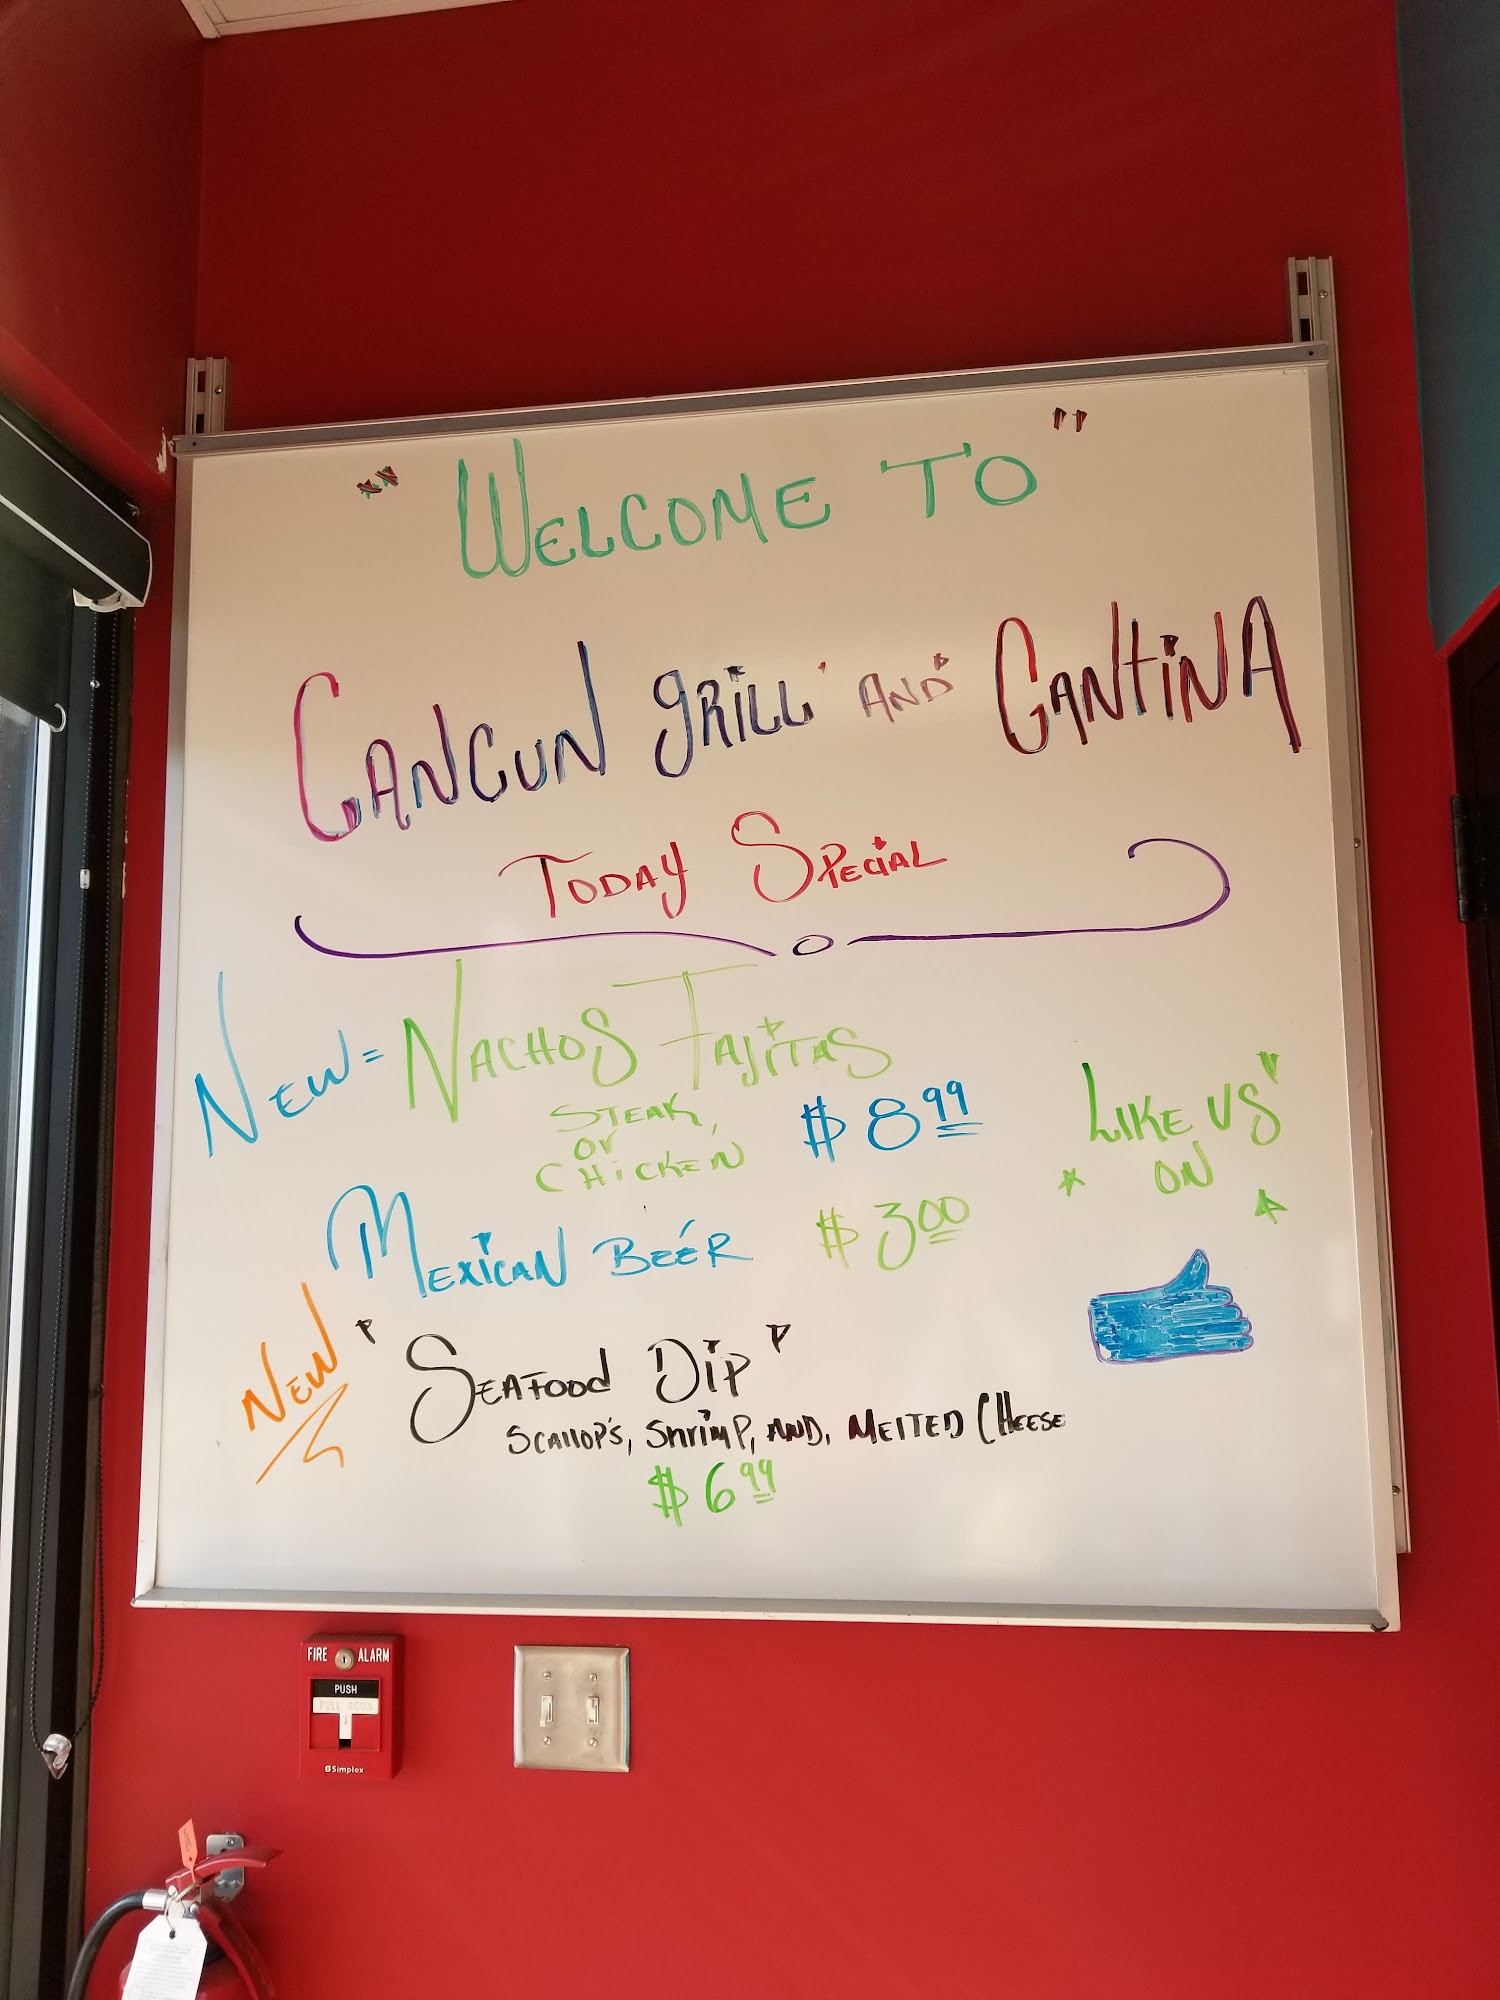 "WELCOME TO"
CANCUN GRILL' AND CANTINA
TODAY SPECIAL
NEW = NACHOS FAJITAS
STEAK,
OR
CHICKEN
$8.99
MEXICAN BEER $3.00
LIKE US"
ON
NEW "SEAFOOD DIP"
SCALLOP'S, SHRIMP, AND, MELTED CHEESE
$6.99
FIRE ALARM
PUSH
PULL DOWN
Simplex